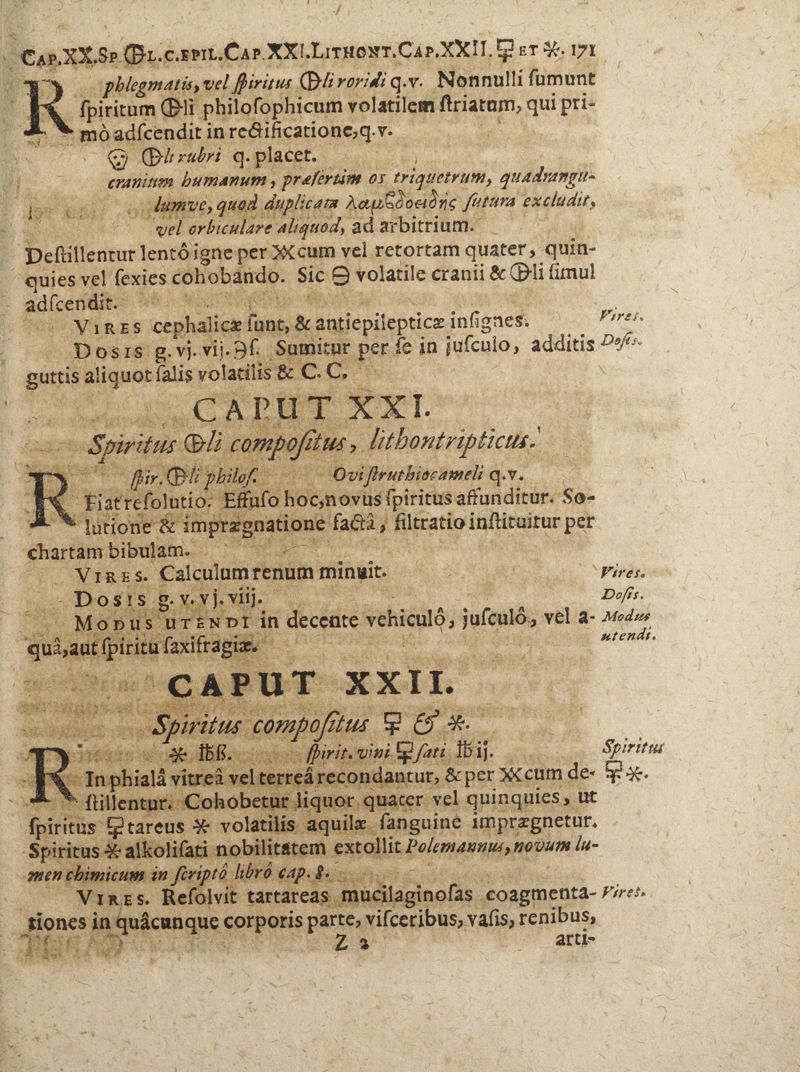 CAP.XX.SP.🜖L.C.EPIL.CAP.XXI.LITHONT.CAP.XXII.🜿 ET 🞶. 171
phlegmatis, vel ſpiritus 🜖li roridi q.v. Nonnulli ſumunt
R ſpiritum 🜖li philoſophicum volatilem ſtriatum, qui pri-
mò adſcendit in rectificatione, q.v.
🜖li rubri q. placet.
cranium humanum, præſertim os triquetrum, quadrangu-
lumve, quod duplicata λαμβδοειδὴς ſutura excludit,
vel orbiculare aliquod, ad arbitrium.
Deſtillentur lentô igne per XX cum vel retortam quater, quin-
quies vel ſexies cohobando. Sic 🜔 volatile cranii & 🜖li ſimul
adſcendit.
VIRES cephalicæ ſunt, & antiepilepticæ inſignes. Vires.
DOSIS g.vj.vij.℈ſ. Sumitur per ſe in juſculo, additis Doſis.
guttis aliquot ſalis volatilis & C.C.
CAPUT XXI.
Spiritus 🜖li compoſitus, lithontripticus.
ſpir. 🜖li philoſ. Ovi ſtruthiocameli q.v.
R Fiat reſolutio. Effuſo hoc, novus ſpiritus affunditur. So-
lutione & imprægnatione factâ, filtratio inſtituitur per
chartam bibulam.
VIRES. Calculum renum minuit. Vires.
DOSIS g.v.vj.viij. Doſis.
MODUS UTENDI in decente vehiculô, juſculô, vel a- Modus
quâ, aut ſpiritu ſaxifragiæ. utendi.
CAPUT XXII.
Spiritus compoſitus 🜿 & 🞶.
🞶 ℔ß. ſpirit. vini 🜿ſati ℔ij. Spiritus
R In phialâ vitreâ vel terreâ recondantur, & per XX cum de- 🜿 🞶.
ſtillentur. Cohobetur liquor quater vel quinquies, ut
ſpiritus 🜿tareus 🞶 volatilis aquilæ ſanguine imprægnetur.
Spiritus 🞶 alkoliſati nobilitatem extollit Polemannus, novum lu-
men chimicum in ſcriptô librô cap. 8.
VIRES. Reſolvit tartareas mucilaginoſas coagmenta- Vires.
tiones in quâcunque corporis parte, viſceribus, vaſis, renibus,
Z 2 arti-